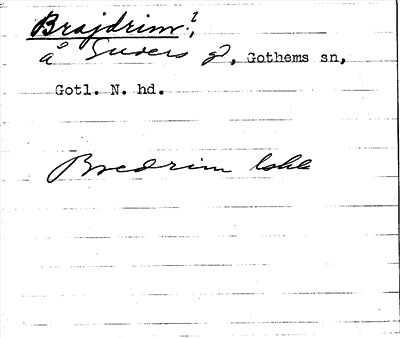 Brajdrim?,
å Suders gd, Gothems sn,
Gotl. N. hd.
Bredrim